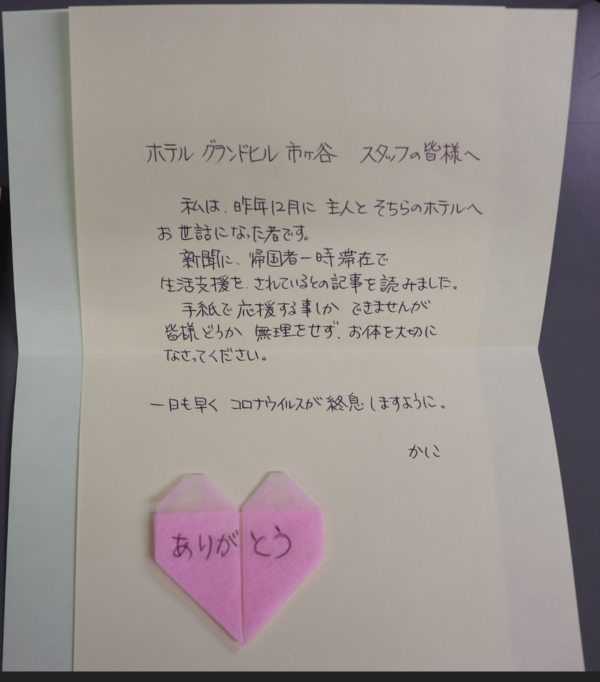 ホテル グランドヒル 市ヶ谷 スタッフの皆様へ
私は、昨年12月に 主人と そちらのホテルへ
お世話になった者です。
新聞に、帰国者一時滞在で
生活支援を、されているとの記事を読みました。
手紙で応援する事しか できませんが
皆様どうか 無理をせず、お体を大切に
なさってください。
一日も早く コロナウイルスが終息しますように。
かに
ありがとう